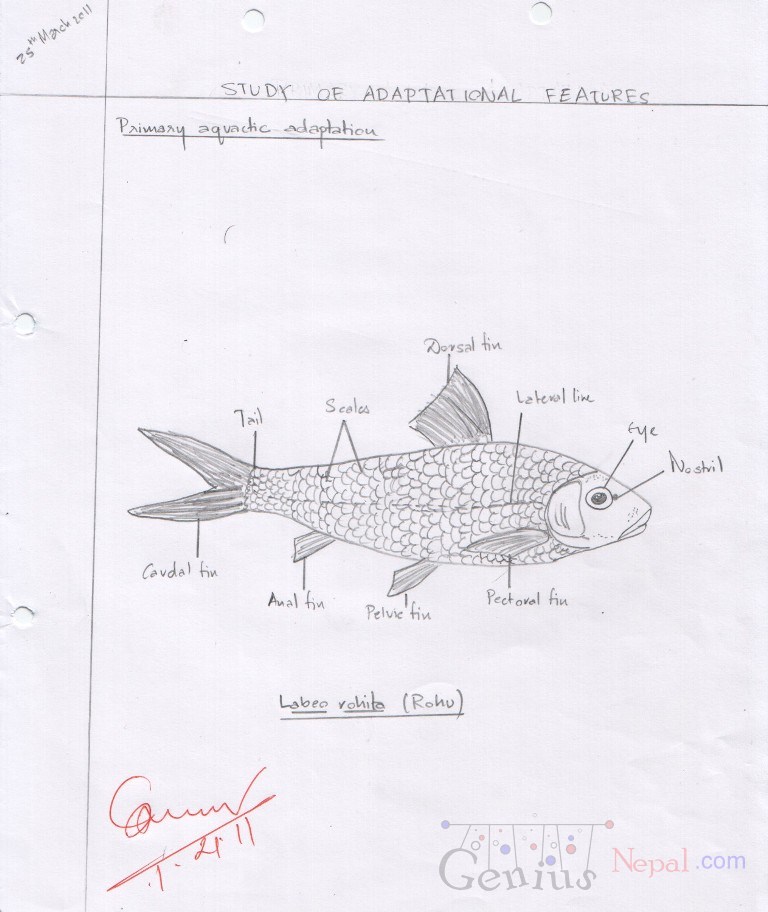 25th March 2011
STUDY OF ADAPTATIONAL FEATURES
Primary aquactic adaptation
Dorsal fin
Lateral line
Scales
Tail
Eye
Nostril
Caudal fin
Anal fin
Pelvic fin
Pectoral fin
Labeo rohita (Rohu)
Genius Nepal.com